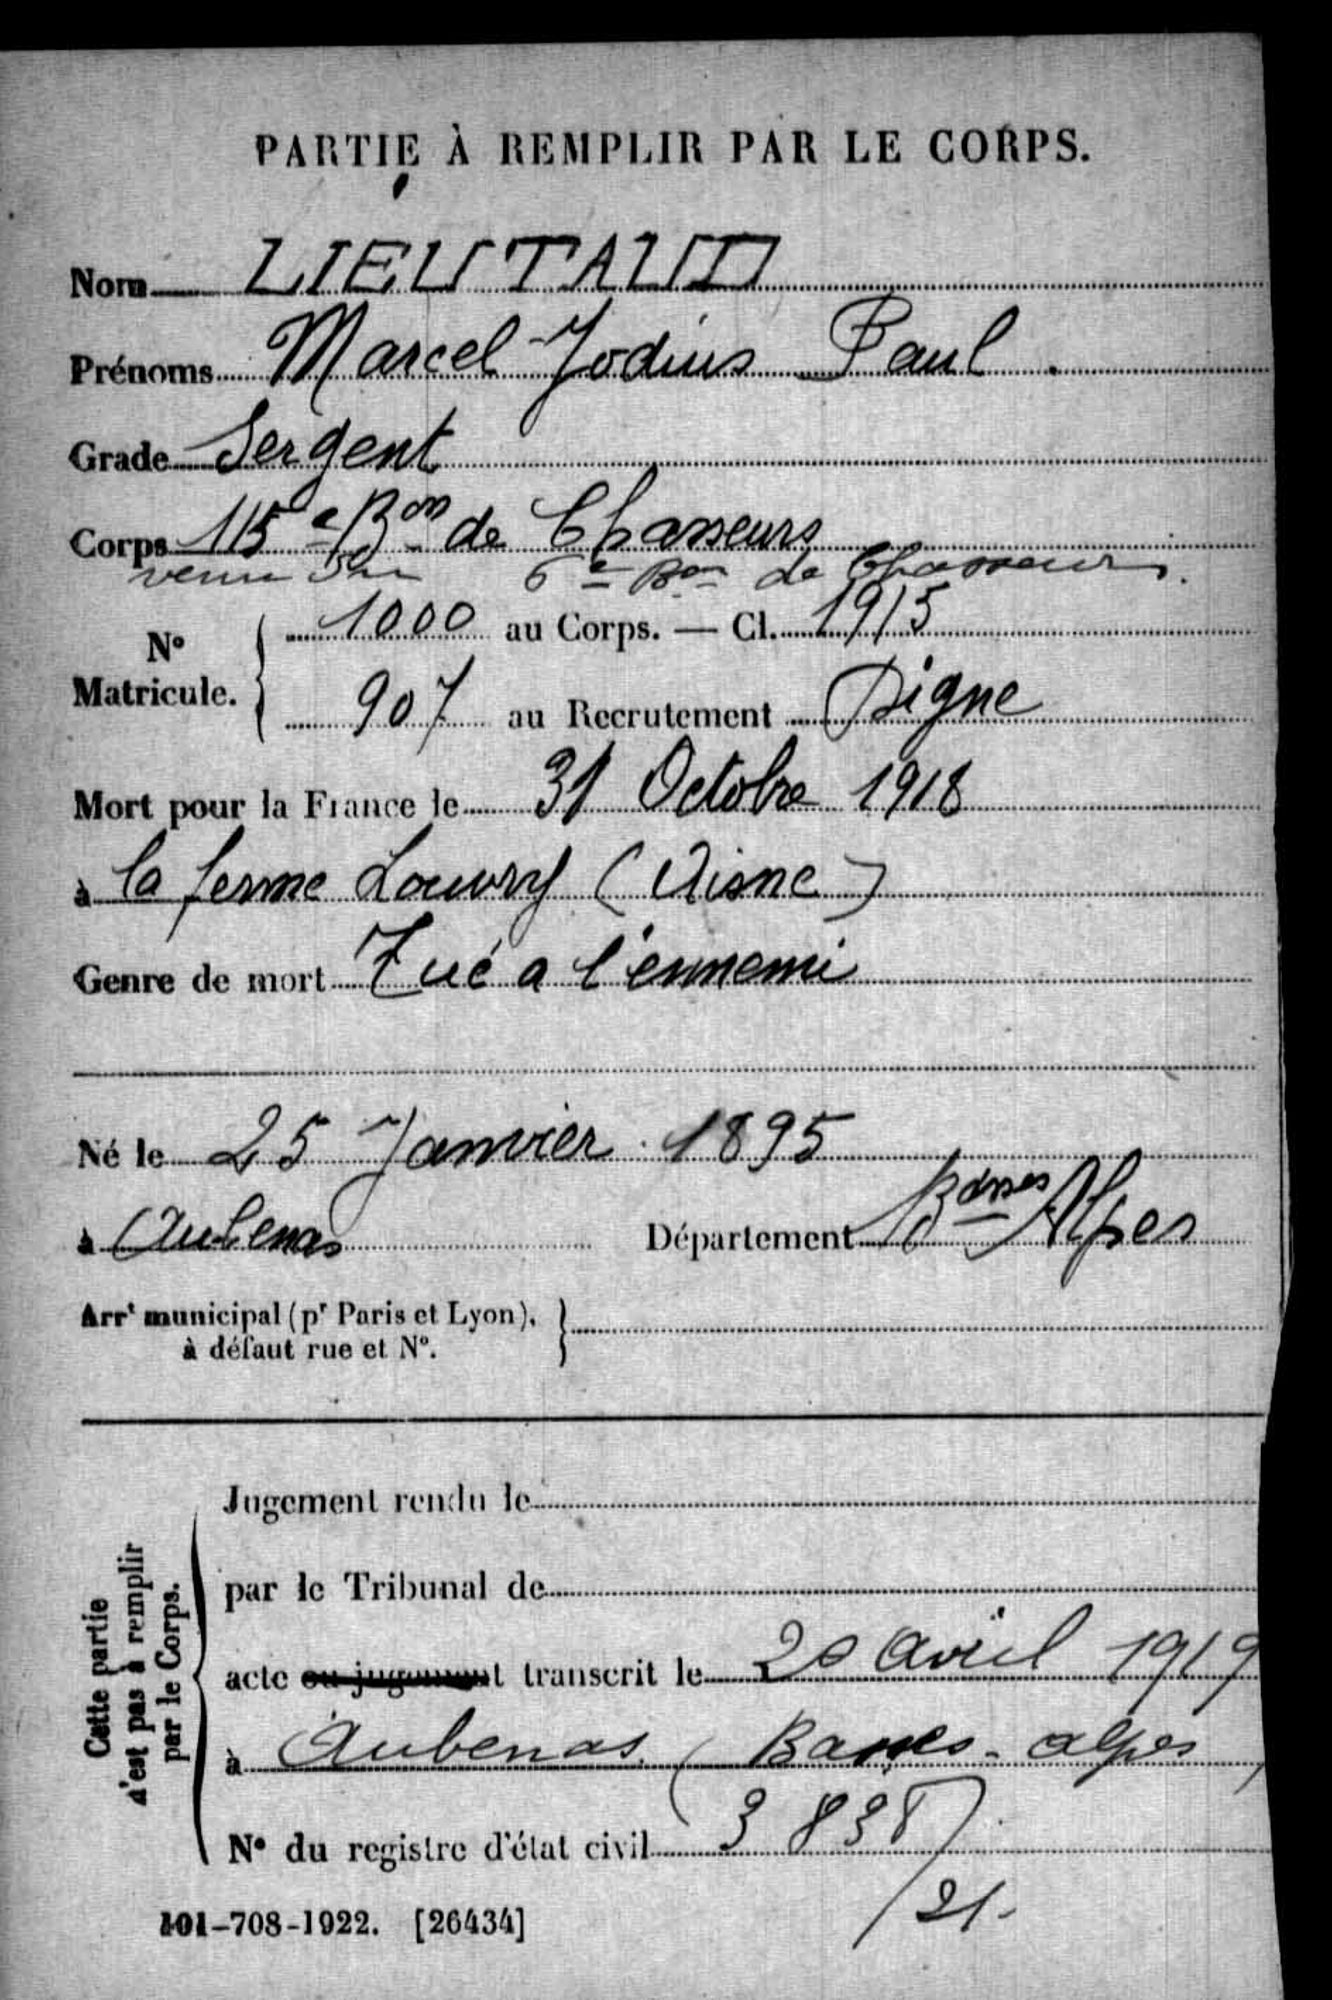 PARTIE À REMPLIR PAR LE CORPS.
Nom LIEUTAUD
Prénoms Marcel Jodius Paul
Grade Sergent
Corps 115e Bon de Chasseurs
venu du 6e Bon de Chasseurs.
No Matricule. { 1000 au Corps. — Cl. 1915
907 au Recrutement Digne
Mort pour la France le 31 Octobre 1918
à la ferme Louvry (Aisne)
Genre de mort Tué a l'ennemi
Né le 25 Janvier 1895
à Aubenas Département Basses Alpes
Arrt municipal (pr Paris et Lyon), }
à défaut rue et No.
Cette partie
n'est pas à remplir
par le Corps.
Jugement rendu le
par le Tribunal de
acte ou jugement transcrit le 20 avril 1919
à Aubenas (Basses-alpes
No du registre d'état civil 3 838)
/21-
101-708-1922. [26434]